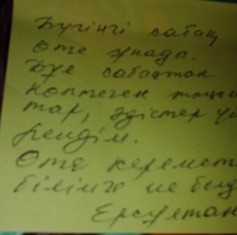 Бүгінгі сабақ
өте ұнады.
Бұл сабақтан
көптеген
тар, әдістер үй
рендім.
Өте керемет
білімге ие бол
Ерсұлтан